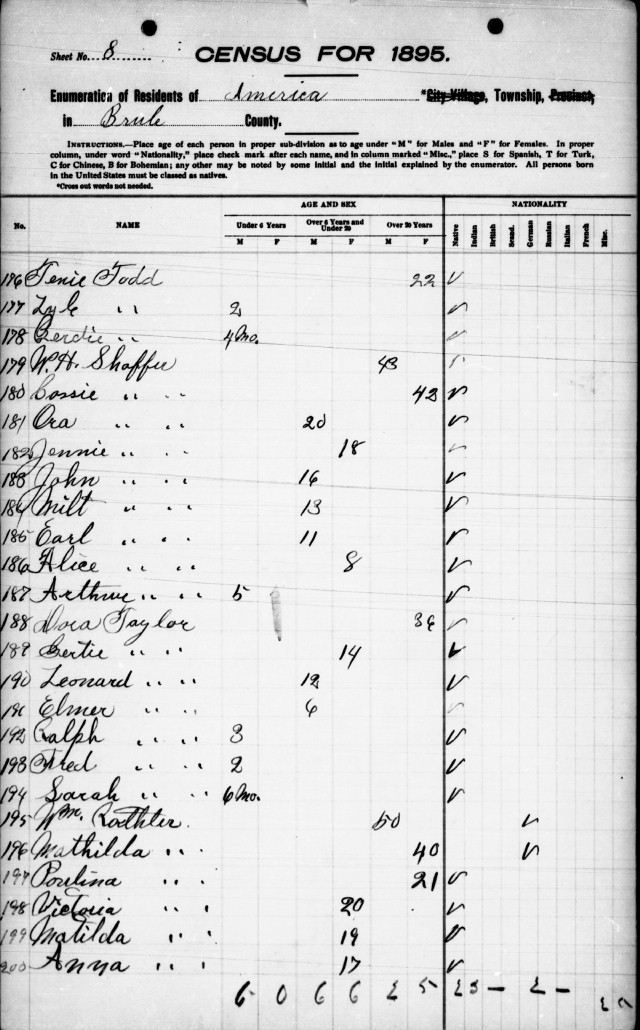 Sheet No. 8
CENSUS FOR 1895.
Enumeration of Residents of America *City Village, Township, Precinct,
in Brule County.
INSTRUCTIONS.—Place age of each person in proper sub-division as to age under "M" for Males and "F" for Females. In proper
column, under word "Nationality," place check mark after each name, and in column marked "Misc.," place S for Spanish, T for Turk,
C for Chinese, B for Bohemian; any other may be noted by some initial and the initial explained by the enumerator. All persons born
in the United States must be classed as natives.
*Cross out words not needed.
No. NAME AGE AND SEX NATIONALITY
Under 6 Years Over 6 Years and Under 20 Over 20 Years
M F M F M F Native Indian British Scand. German Russian Italian French Misc.
176 Tenie Todd 22 ✓
177 Lyle " " 2 ✓
178 " " 4 Mo. ✓
179 W. H. Shaffer 43 ✓
180 Cossie " " 42 ✓
181 Ora " " 20 ✓
182 Jennie " " 18 ✓
183 John " " 16 ✓
184 Milt " " 13 ✓
185 Earl " " 11 ✓
186 Alice " " 8 ✓
187 Arthur " " 5 ✓
188 Dora Taylor ✓
189 Gertie " " 14 ✓
190 Leonard " " 12 ✓
191 Elmer " " 6 ✓
192 Ralph " " 3 ✓
193 Fred " " 2 ✓
194 Sarah " " 6 Mo. ✓
195 Wm. 50 ✓
196 Mathilda " " 40 ✓
197 Poulina " " 21 ✓
198 Victoria " " 20 ✓
199 Matilda " " 19 ✓
200 Anna " " 17 ✓
6 0 6 6 2 5 23 – 2 –